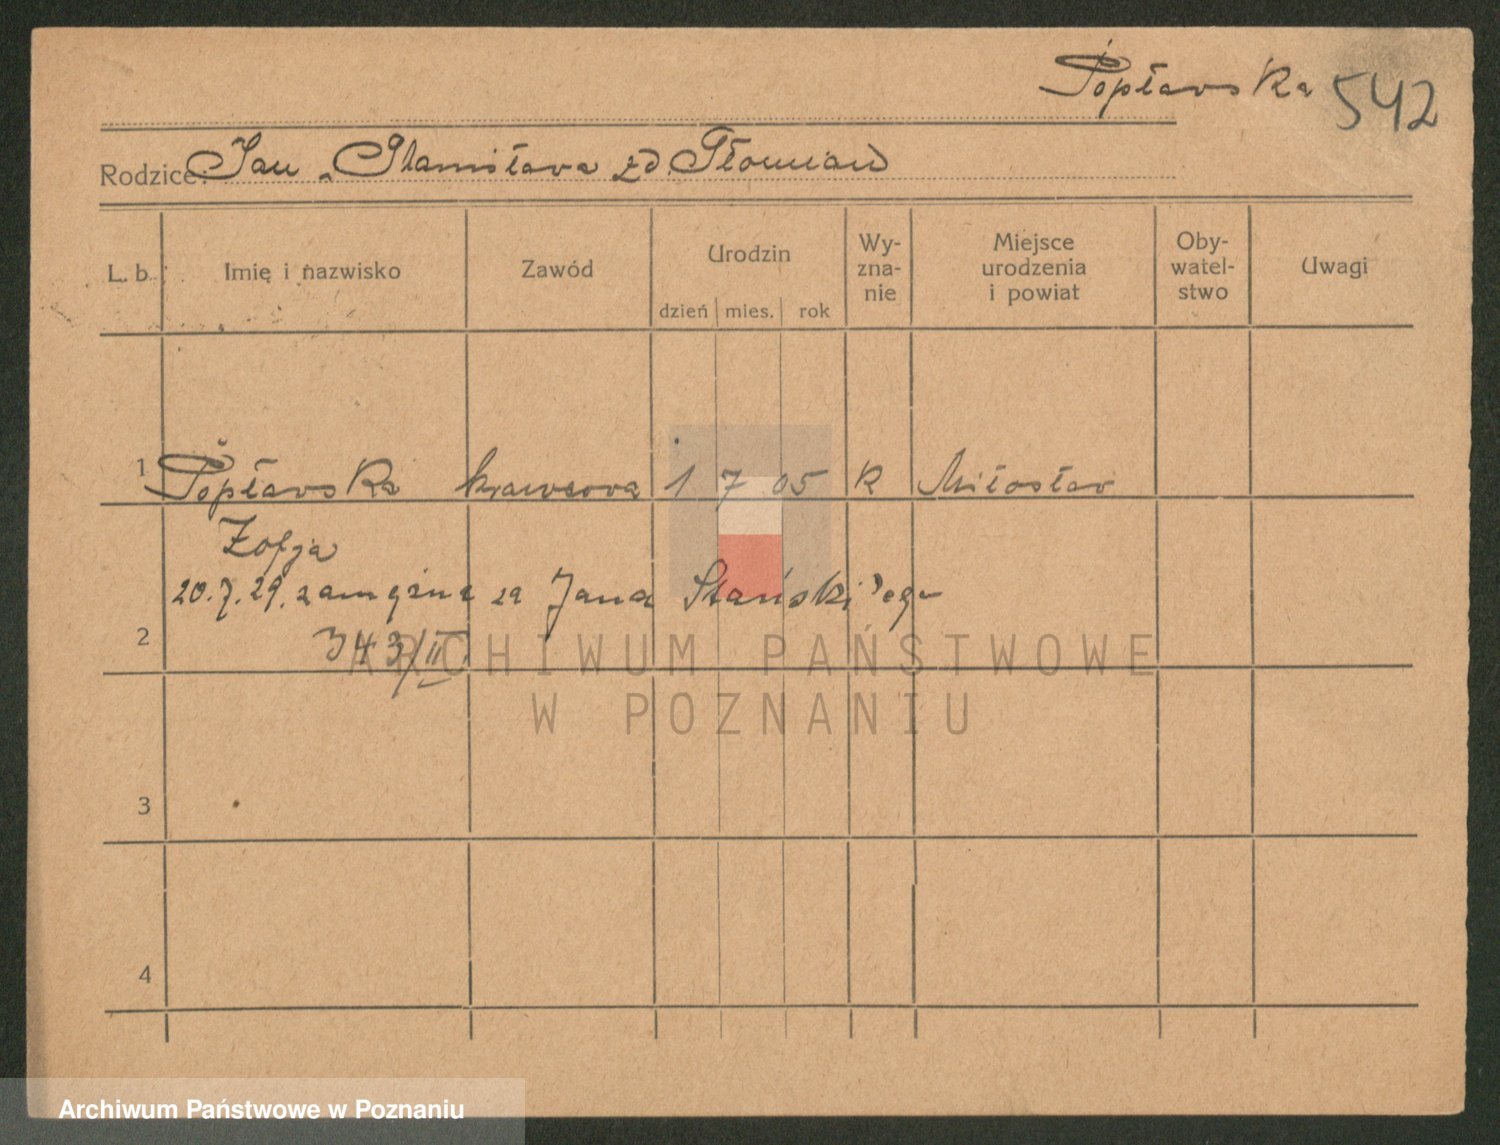 Popławska 542
Rodzice: Jan, Stanisława zd. Płomian
L. b. Imię i nazwisko Zawód Urodzin dzień mies. rok Wy-zna-nie Miejsce urodzenia i powiat Oby-watel-stwo Uwagi
1 Popławska krawcowa 1 7 05 k Miłosław
Zofja
20.7.29. zamężna za Jana Stański'ego
2 343/II
ARCHIWUM PAŃSTWOWE
W POZNANIU
3
4
Archiwum Państwowe w Poznaniu